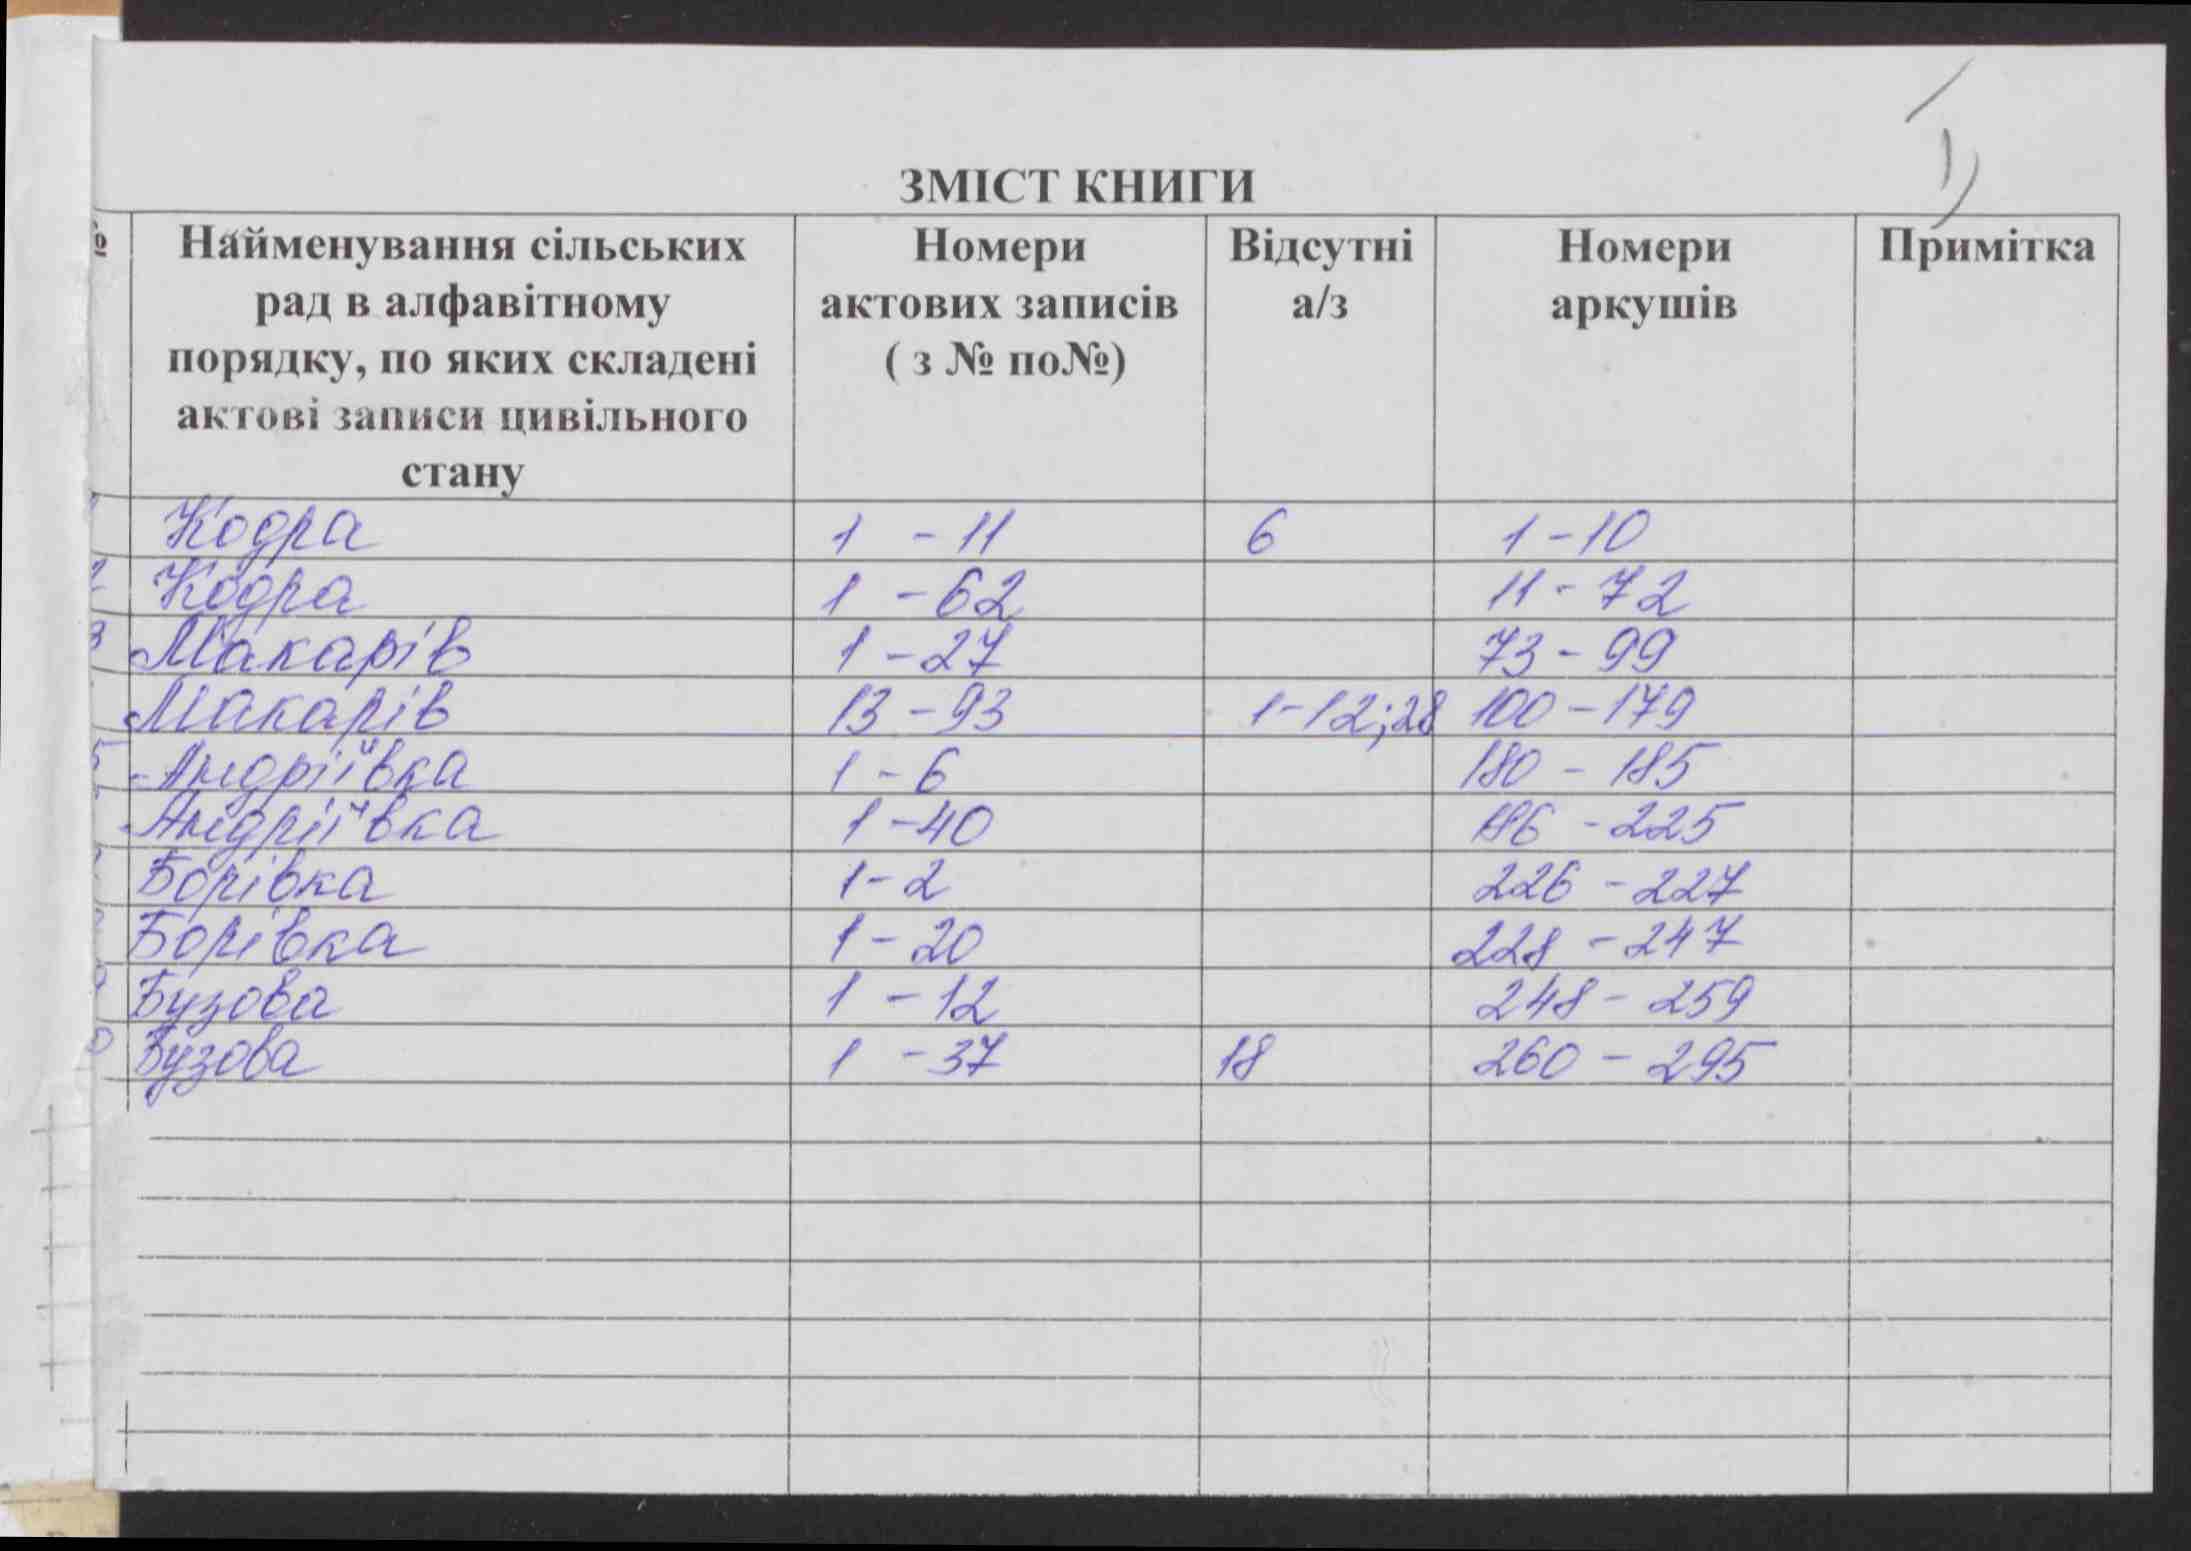 ЗМІСТ КНИГИ
№ Найменування сільських рад в алфавітному порядку, по яких складені актові записи цивільного стану Номери актових записів ( з № по№) Відсутні а/з Номери аркушів Примітка
Кодра 1 - 11 6 1 - 10
2 Кодра 1 - 62 11 - 72
3 Макарів 1 - 27 73 - 99
Макарів 13 - 93 1-12; 28 100 - 179
5 Андріївка 1 - 6 180 - 185
Андріївка 1 - 40 186 - 225
Борівка 1 - 2 226 - 227
Борівка 1 - 20 228 - 247
Бузова 1 - 12 248 - 259
Бузова 1 - 37 18 260 - 295